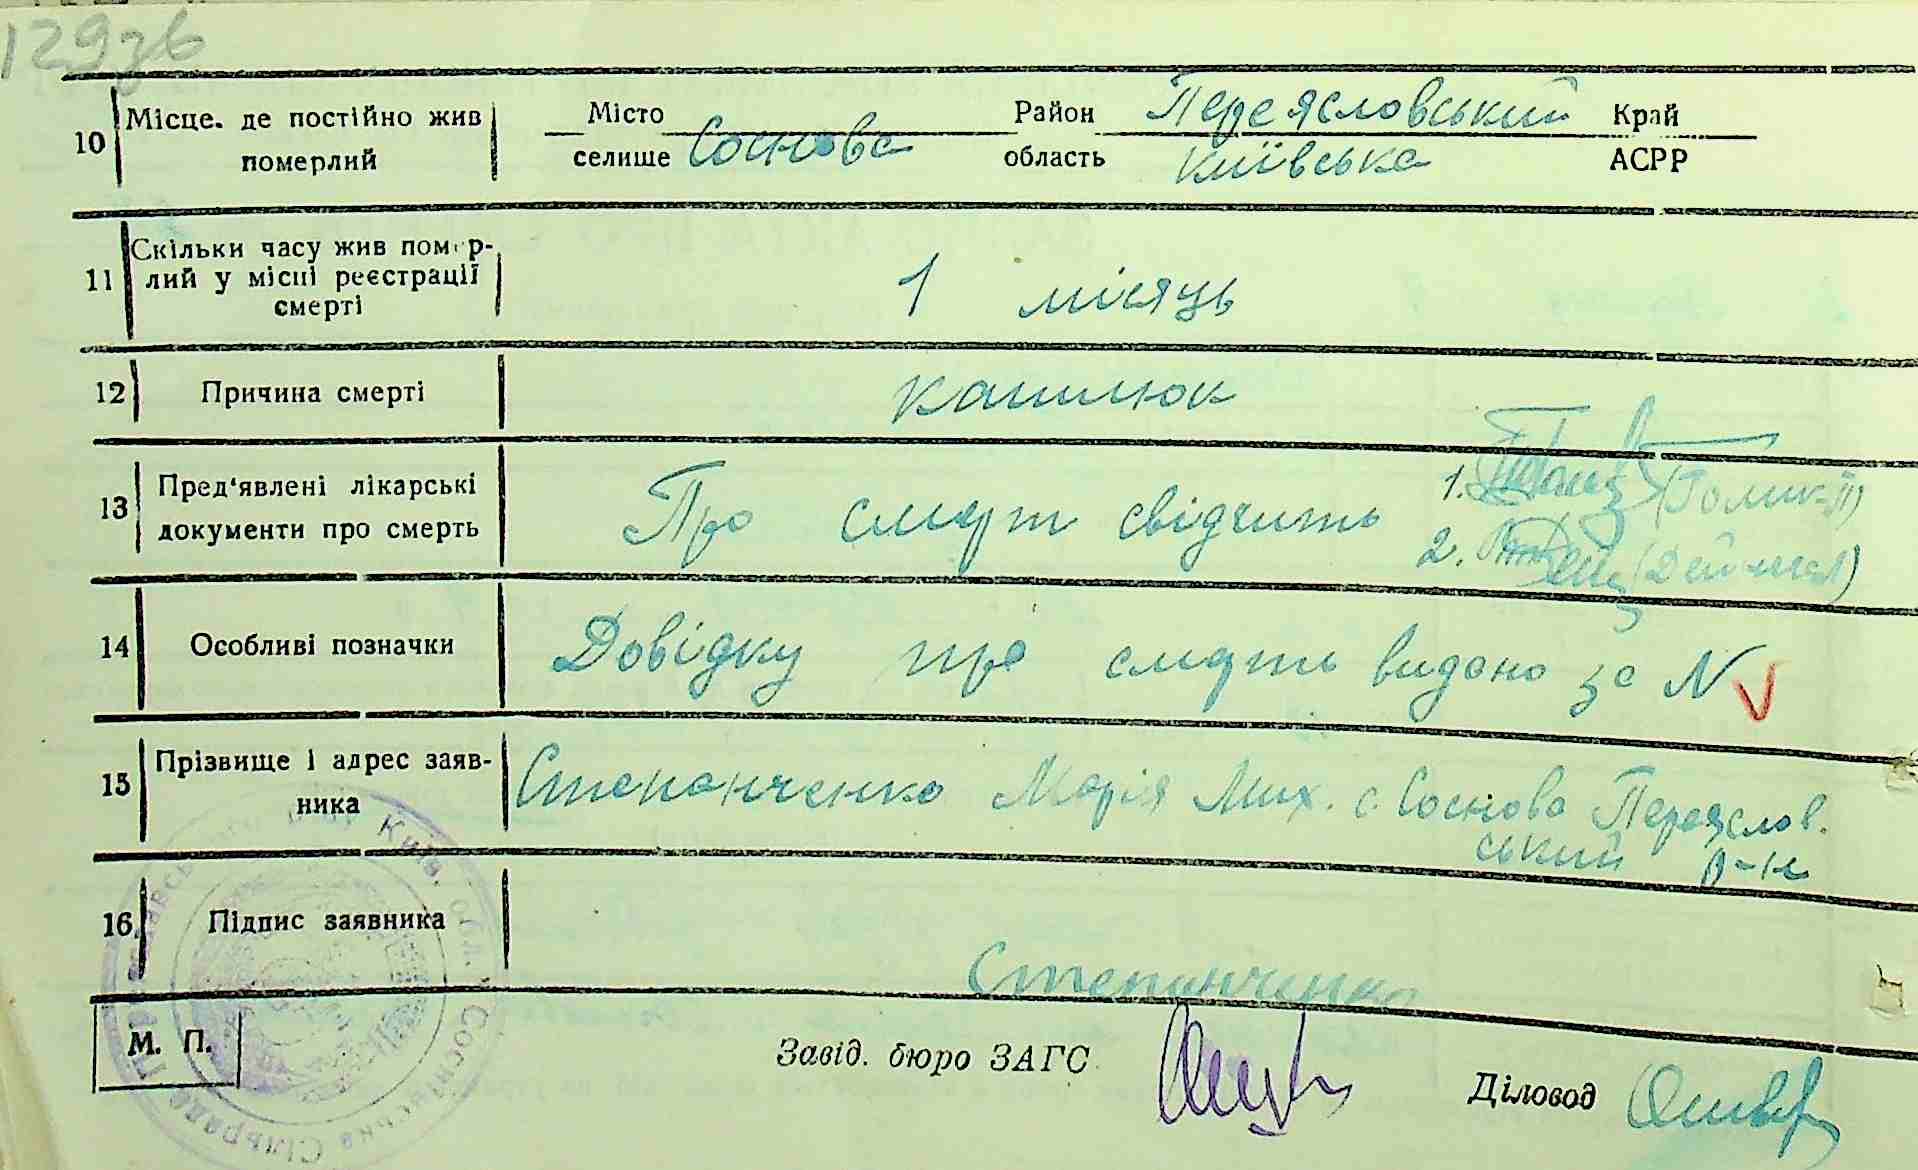 129зв
10 Місце. де постійно жив померлий
Місто селище Соснова Район Переясловський область Київська Край АСРР
11 Скільки часу жив помер-
лий у місці реєстрації
смерті
1 місяць
12 Причина смерті кашлюк
13 Пред'явлені лікарські
документи про смерть
Про смерть свідчить 1.
2.
14 Особливі позначки Довідку про смерть видано за N
15 Прізвище і адрес заяв-
ника
Степанченко Марія Мих. с. Соснова Переяслов.
ський р-н
16 Підпис заявника
Степанченко
М. П. Завід. бюро ЗАГС
Діловод
Київ. обл. Соснівська Сільрада